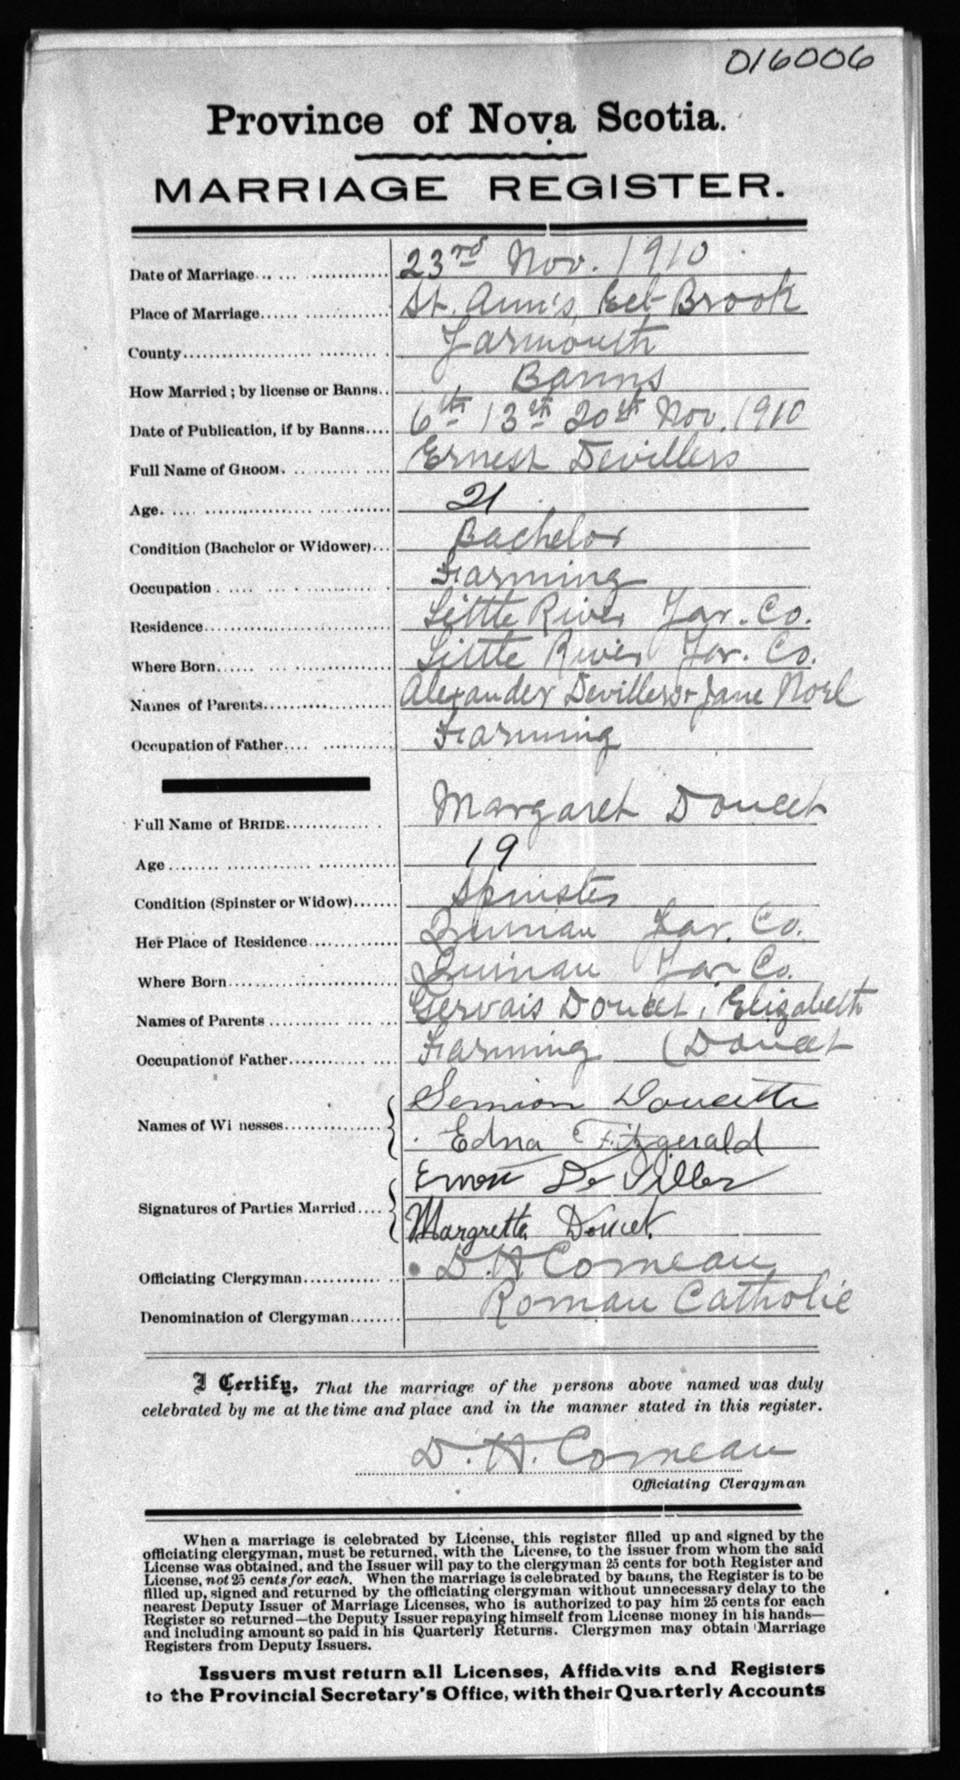 016006
Province of Nova Scotia.
MARRIAGE REGISTER.
Date of Marriage 23rd Nov. 1910
Place of Marriage St. Ann's, Eel Brook
County Yarmouth
How Married; by license or Banns Banns
Date of Publication, if by Banns 6th 13th 20th Nov. 1910
Full Name of GROOM. Ernest Devillers
Age 21
Condition (Bachelor or Widower) Bachelor
Occupation Farming
Residence Little River Yar. Co.
Where Born Little River Yar. Co.
Names of Parents Alexander Devillers + Jane Noel
Occupation of Father Farming
Full Name of BRIDE Margaret Doucet
Age 19
Condition (Spinster or Widow) Spinster
Her Place of Residence Quinan Yar. Co.
Where Born Quinan Yar Co.
Names of Parents Gervais Doucet, Elizabeth
Occupation of Father Farming (Doucet
Names of Wi nesses Doucette
Edna Fitzgerald
Signatures of Parties Married Ernest De Viller
Margrette Doucet
Officiating Clergyman D. H Comeau
Denomination of Clergyman Roman Catholic
I Certify, That the marriage of the persons above named was duly
celebrated by me at the time and place and in the manner stated in this register.
D. H. Comeau
Officiating Clergyman
When a marriage is celebrated by License, this register filled up and signed by the
officiating clergyman, must be returned, with the License, to the issuer from whom the said
License was obtained, and the Issuer will pay to the clergyman 25 cents for both Register and
License, not 25 cents for each. When the marriage is celebrated by banns, the Register is to be
filled up, signed and returned by the officiating clergyman without unnecessary delay to the
nearest Deputy Issuer of Marriage Licenses, who is authorized to pay him 25 cents for each
Register so returned—the Deputy Issuer repaying himself from License money in his hands—
and including amount so paid in his Quarterly Returns. Clergymen may obtain Marriage
Registers from Deputy Issuers.
Issuers must return all Licenses, Affidavits and Registers
to the Provincial Secretary's Office, with their Quarterly Accounts